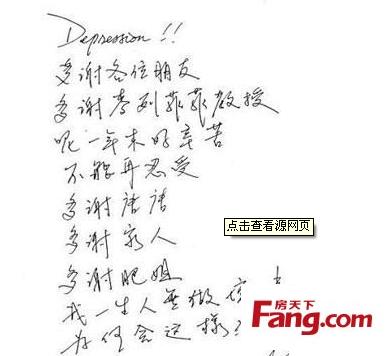 Depression!!
多谢各位朋友
多谢李列菲菲教授
呢一年来好辛苦
不能再忍受
多谢唐唐
多谢家人
多谢肥姐
我一生人无做坏
为何会这样?
点击查看源网页
房天下
Fang.com